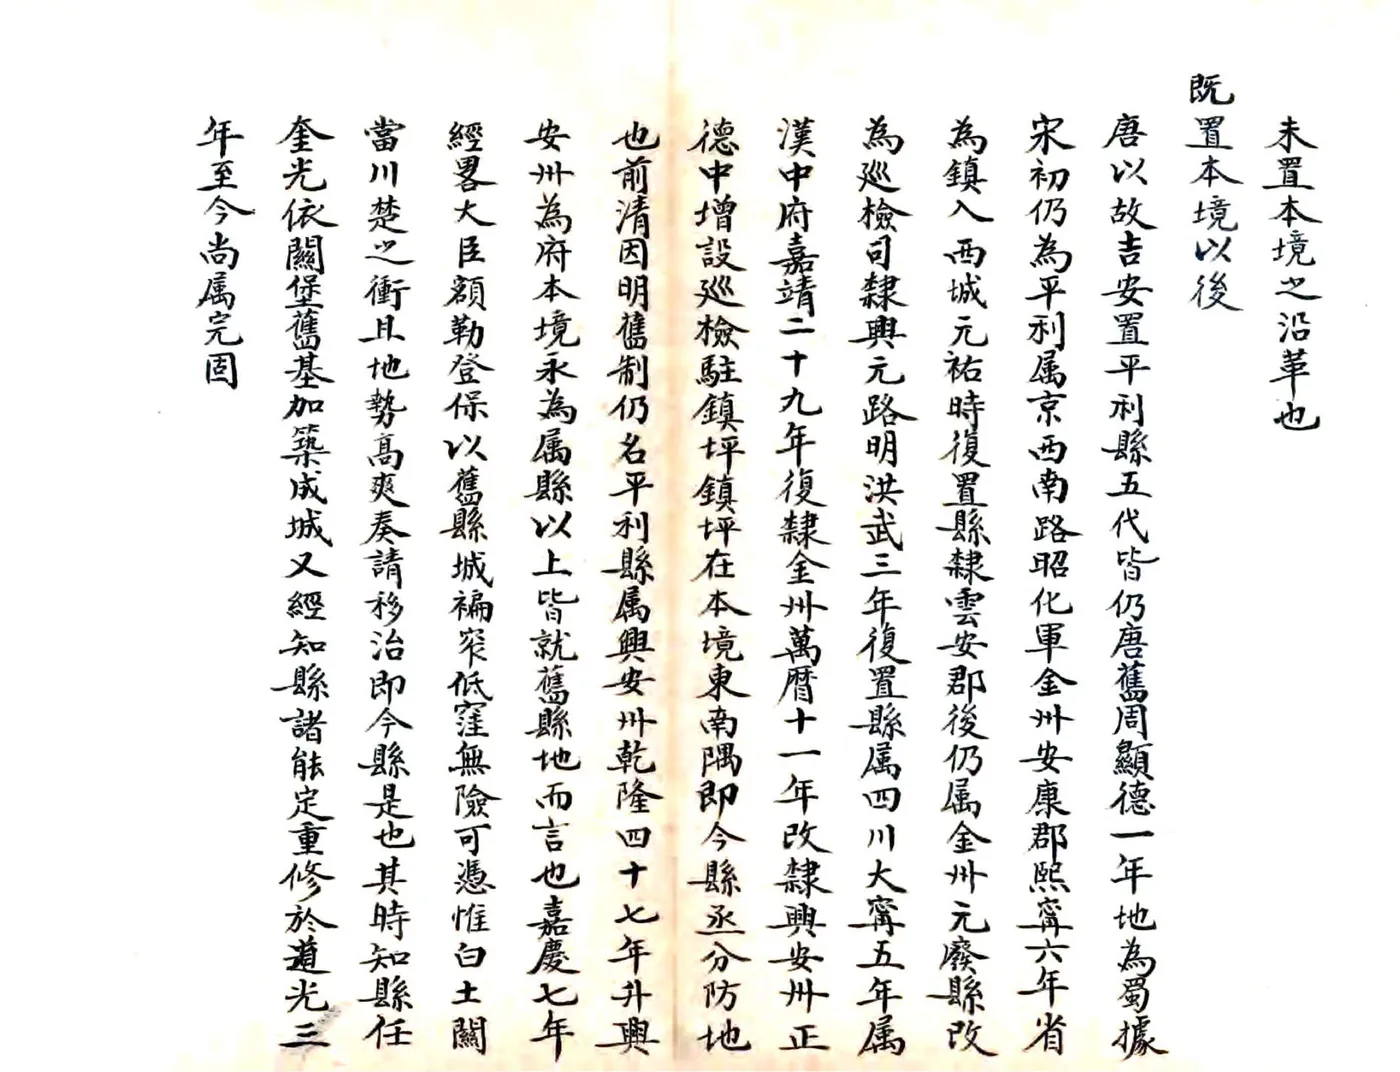 未置本境之沿革也
既置本境以後
唐以故吉安置平利縣五代皆仍唐舊周顯德一年地為蜀據
宋初仍為平利属京西南路昭化軍金州安康郡熙寧六年省
為鎮入西城元祐時復置縣隸雲安郡後仍属金州元廢縣改
為巡檢司隸興元路明洪武三年復置縣属四川大寧五年属
漢中府嘉靖二十九年復隸金州萬曆十一年改隸興安州正
德中增設巡檢駐鎮坪鎮坪在本境東南隅即今縣丞分防地
也前清因明舊制仍名平利縣属興安州乾隆四十七年升興
安州為府本境永為属縣以上皆就舊縣地而言也嘉慶七年
經畧大臣額勒登保以舊縣城褊窄低窪無險可憑惟白土關
當川楚之衝且地勢高爽奏請移治即今縣是也其時知縣任
奎光依關堡舊基加築成城又經知縣諸能定重修於道光三
年至今尚属完固